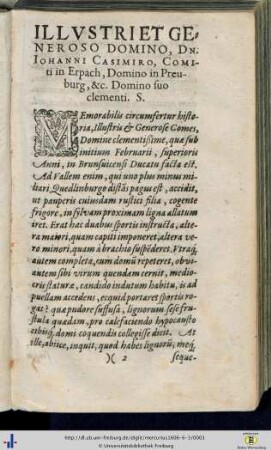 ILLVSTRI ET GE-
NEROSO DOMINO, DN.
IOHANNI CASIMIRO, COMI-
ti in Erpach, Domino in Preu-
burg, &c. Domino suo
clementi. S.
MEmorabilis circumfertur histo-
ria, Illustris & Generose Comes,
Domine clementissime, quæ sub
initium Februarii, superioris
Anni, in Brunsuicensi Ducatu facta est.
Ad Vallem enim, qui uno plus minus mi-
liari, Quedlinburgo distās pagus est, accidit,
ut pauperis cuiusdam rustici filia, cogente
frigore, in sylvam proximam ligna allatum
iret. Erat hæc duabus sportis instructa, alte-
ra maiori, quam capiti imponeret, altera ve-
ro minori, quam à brachio suspēderet. Vtraq;
autem completa, cum domū repeteret, obvi-
autem sibi virum quendam cernit, medio-
cris staturæ, candido indutum habitu, is ad
puellam accedens, ecquid portares sportis ro-
gat? quæ pudore suffusa, lignorum sese fru-
stula quædam, pro calefaciendo hypocausto
cibisq; domi coquendis collegisse dicit. At
ille, abiice, inquit, quod habes lignorū, meq;
)( 2 seque-
http://dl.ub.uni-freiburg.de/diglit/mercurius1606-6-1/0003
© Universitätsbibliothek Freiburg